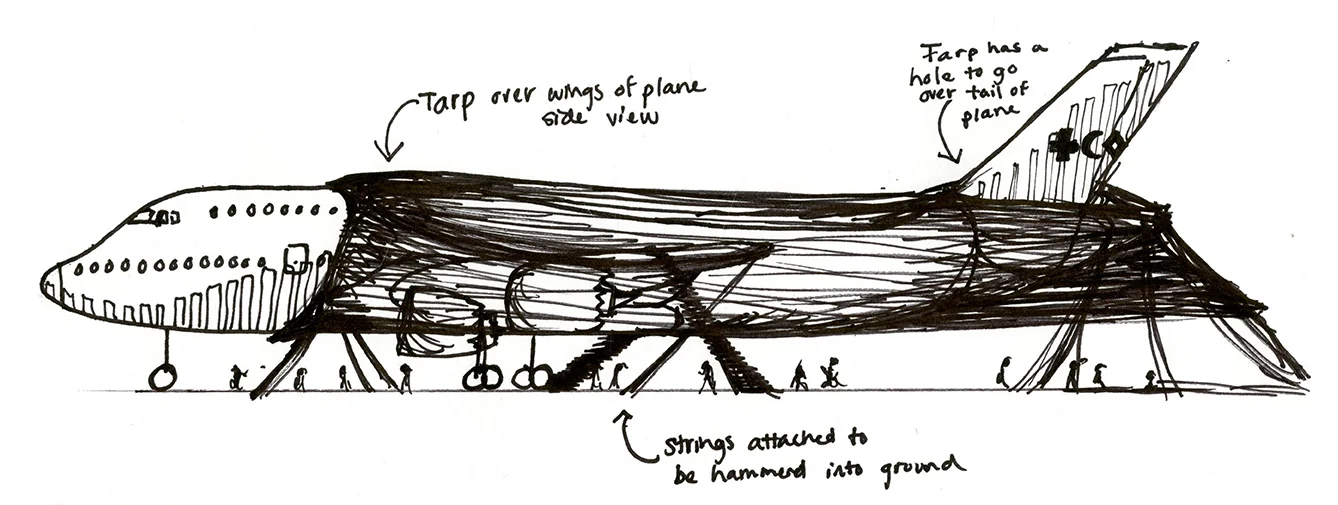 Tarp over wings of plane
side view
Tarp has a
hole to go
over tail of
plane
Strings attached to
be hammerd into ground